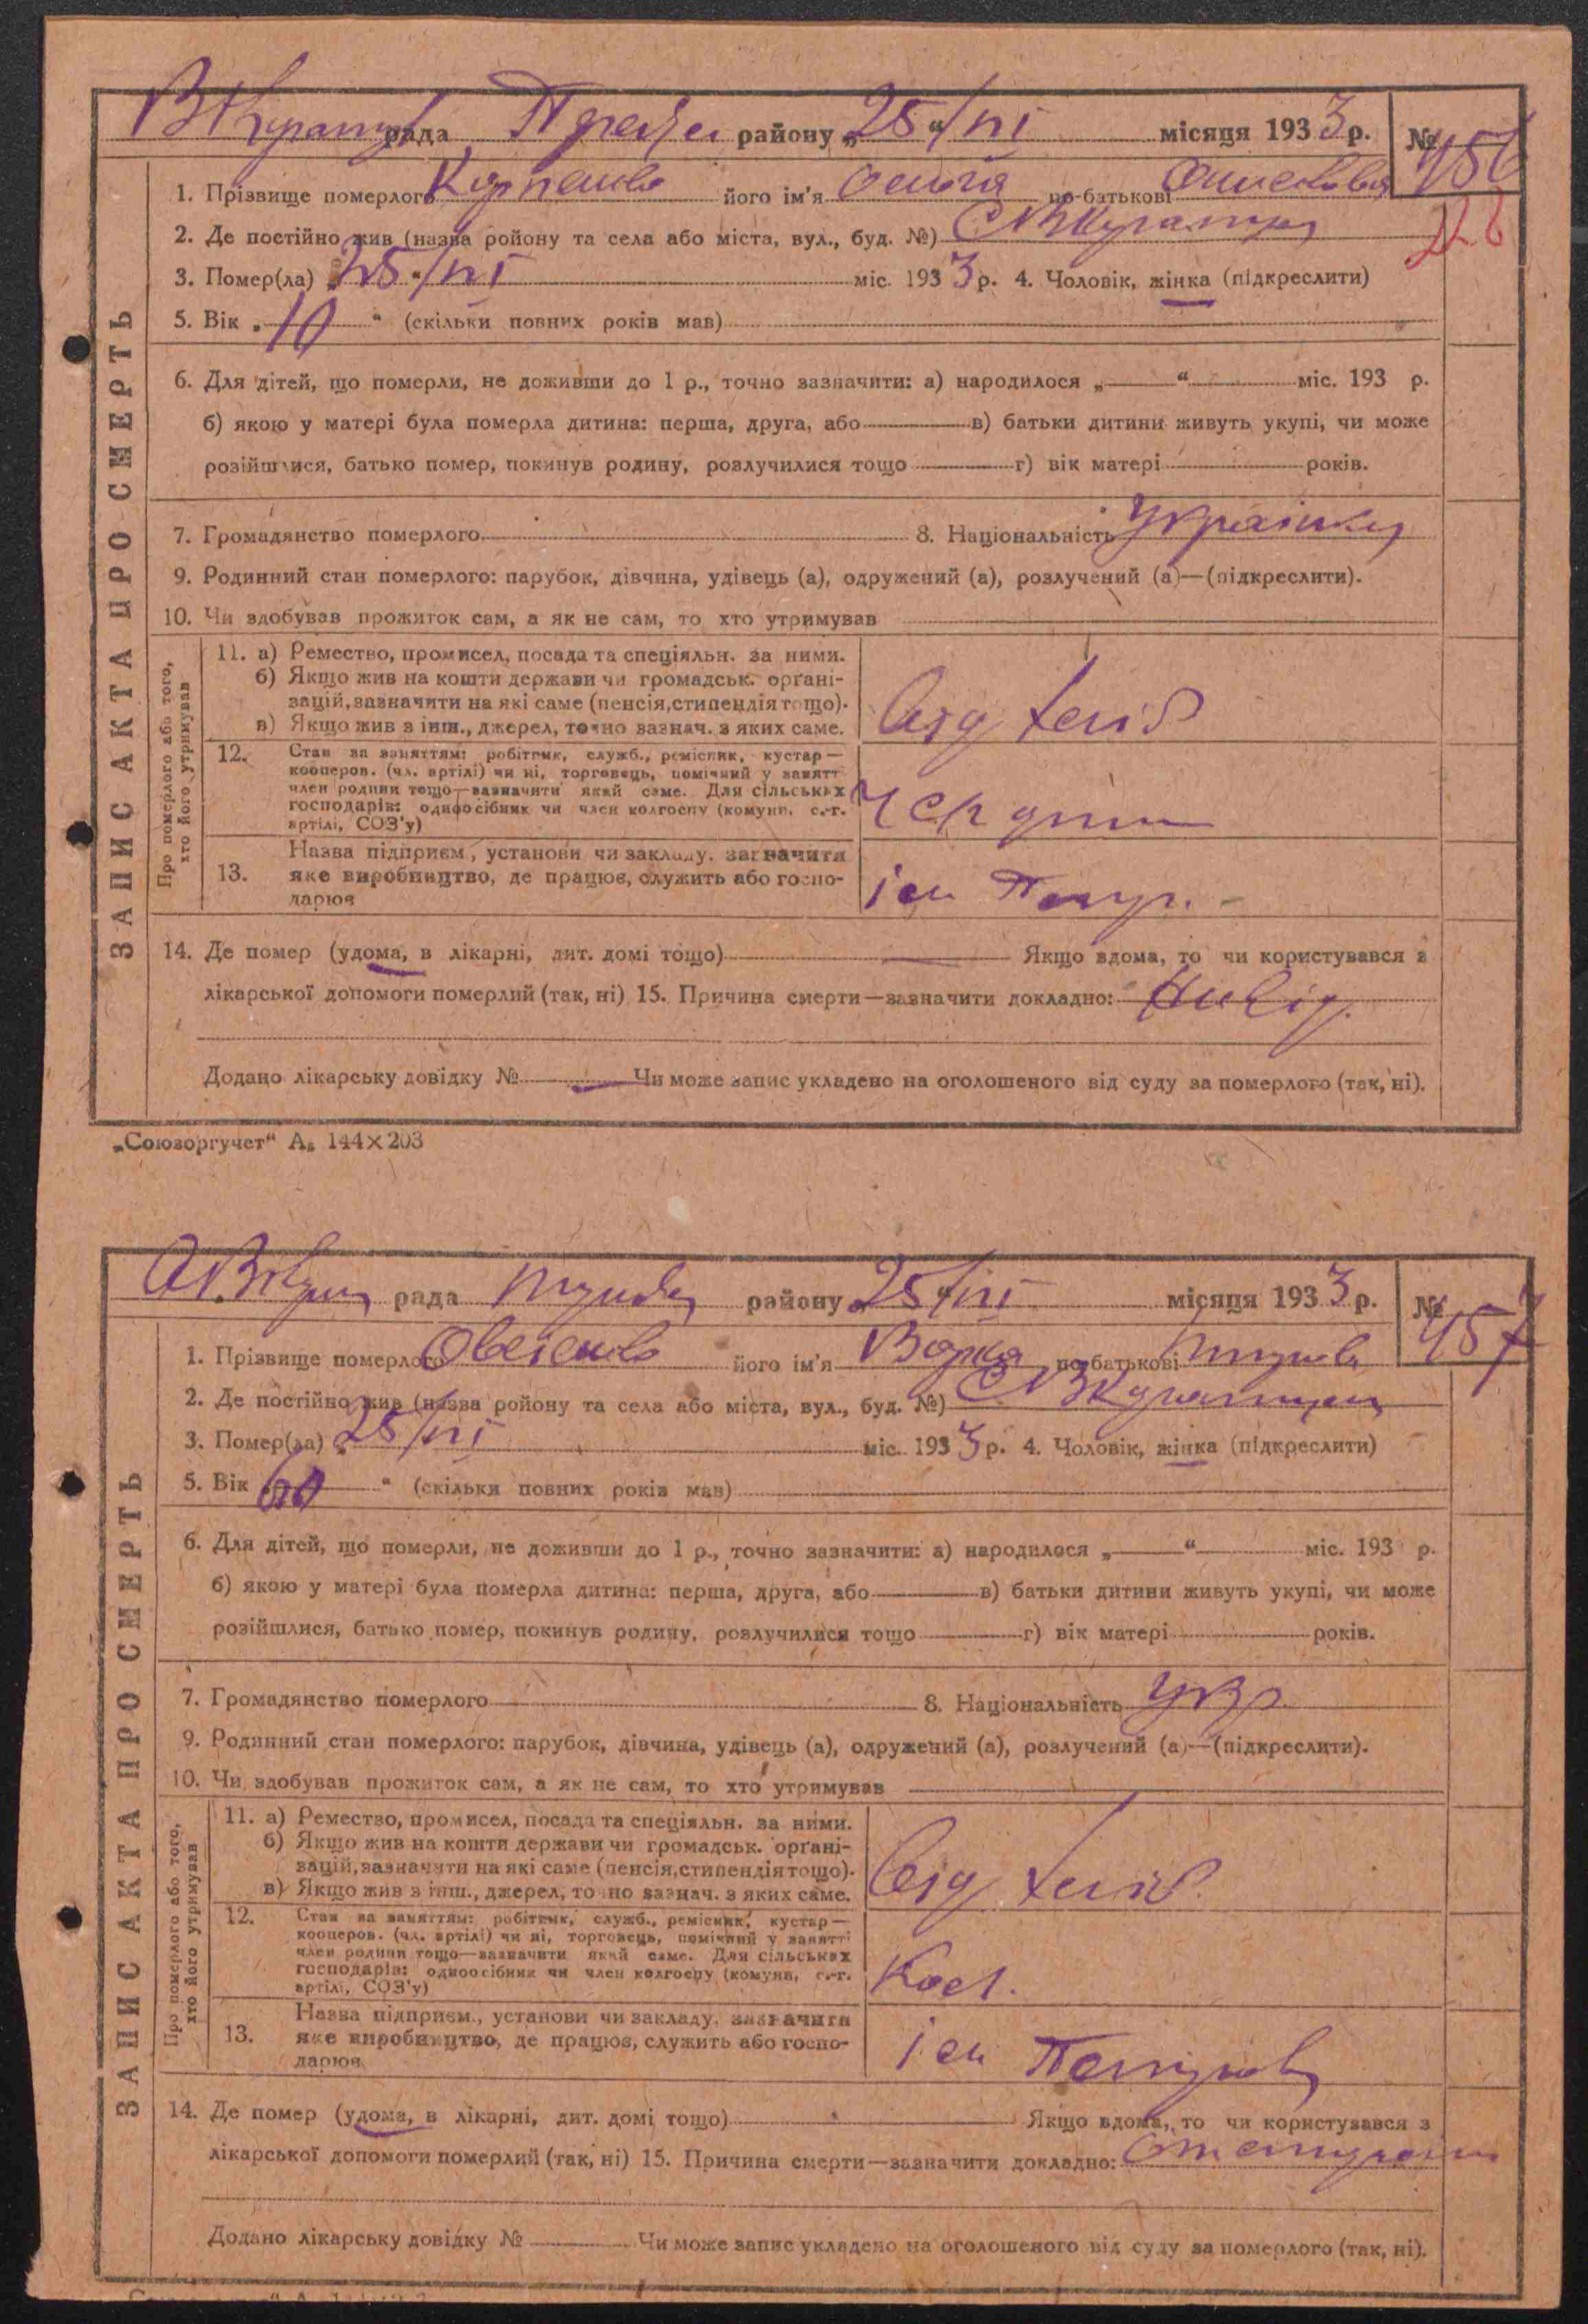 рада району „25“/VI місяця 1933 р. № 456
1. Прізвище померлого його ім'я Ольга по-батькові
2. Де постійно жив (назва ройону та села або міста, вул., буд. №)
3. Помер(ла) „25“/VI міс. 1933 р. 4. Чоловік, жінка (підкреслити)
5. Вік „10“ (скільки повних років мав)
6. Для дітей, що померли, не доживши до 1 р., точно зазначити: а) народилося „ “ міс. 193 р.
б) якою у матері була померла дитина: перша, друга, або в) батьки дитини живуть укупі, чи може
розійшлися, батько помер, покинув родину, розлучилися тощо г) вік матері років.
7. Громадянство померлого 8. Національність Українка
9. Родинний стан померлого: парубок, дівчина, удівець (а), одружений (а), розлучений (а)—(підкреслити).
10. Чи здобував прожиток сам, а як не сам, то хто утримував
ЗАПИС АКТА ПРО СМЕРТЬ
Про померлого або того,
хто його утримував
11. а) Ремество, промисел, посада та спеціяльн. за ними.
б) Якщо жив на кошти держави чи громадськ. орґані-
зацій, зазначити на які саме (пенсія, стипендія тощо).
в) Якщо жив з інш., джерел, точно зазнач. з яких саме.
12. Стан за заняттям: робітник, служб., ремісник, кустар—
кооперов. (чл. артілі) чи ні, торговець, помічний у занятті
член родини тощо—зазначити який саме. Для сільських
господарів: одноосібник чи член колгоспу (комуни, с.-г.
артілі, СОЗ'у)
13. Назва підприєм., установи чи закладу, зазначити
яке виробництво, де працює, служить або госпо-
дарює
14. Де помер (удома, в лікарні, дит. домі тощо) Якщо вдома, то чи користувався з
лікарської допомоги померлий (так, ні) 15. Причина смерти—зазначити докладно:
Додано лікарську довідку № Чи може запис укладено на оголошеного від суду за померлого (так, ні).
„Союзоргучет“ А₅ 144×203
рада району „25“/VI місяця 1933 р. № 457
1. Прізвище померлого його ім'я Варка по-батькові
2. Де постійно жив (назва ройону та села або міста, вул., буд. №)
3. Помер(ла) „25/VI міс. 1933 р. 4. Чоловік, жінка (підкреслити)
5. Вік „60“ (скільки повних років мав)
6. Для дітей, що померли, не доживши до 1 р., точно зазначити: а) народилося „ “ міс. 193 р.
б) якою у матері була померла дитина: перша, друга, або в) батьки дитини живуть укупі, чи може
розійшлися, батько помер, покинув родину, розлучилися тощо г) вік матері років.
7. Громадянство померлого 8. Національність Укр.
9. Родинний стан померлого: парубок, дівчина, удівець (а), одружений (а), розлучений (а)—(підкреслити).
10. Чи здобував прожиток сам, а як не сам, то хто утримував
ЗАПИС АКТА ПРО СМЕРТЬ
Про померлого або того,
хто його утримував
11. а) Ремество, промисел, посада та спеціяльн. за ними.
б) Якщо жив на кошти держави чи громадськ. орґані-
зацій, зазначити на які саме (пенсія, стипендія тощо).
в) Якщо жив з інш., джерел, точно зазнач. з яких саме.
12. Стан за заняттям: робітник, служб., ремісник, кустар—
кооперов. (чл. артілі) чи ні, торговець, помічний у занятті
член родини тощо—зазначити який саме. Для сільських
господарів: одноосібник чи член колгоспу (комуни, с.-г.
артілі, СОЗ'у)
13. Назва підприєм., установи чи закладу, зазначити
яке виробництво, де працює, служить або госпо-
дарює
14. Де помер (удома, в лікарні, дит. домі тощо) Якщо вдома, то чи користувався з
лікарської допомоги померлий (так, ні) 15. Причина смерти—зазначити докладно:
Додано лікарську довідку № Чи може запис укладено на оголошеного від суду за померлого (так, ні).